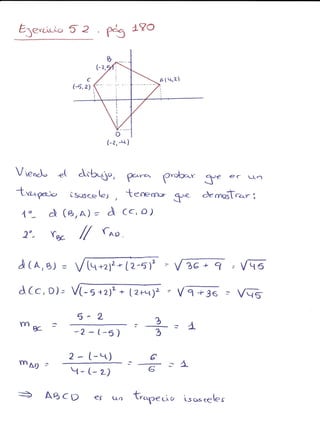 Ejercicio 52. pág 180
B
(-2,5)
C
(-5,2)
A(4,2)
D
(-2,-4)
Viendo el dibujo, para probar que es un
trapecio isosceles, tenemos que demostrar:
1º d(B,A) = d(C,D)
2º. r_BC // r_AD.
d(A,B) = √((4+2)²+(2-5)²) = √(36+9) = √45
d(C,D) = √((-5+2)²+(2+4)²) = √(9+36) = √45
m_BC = (5-2)/(-2-(-5)) = 3/3 = 1
m_AD = (2-(-4))/(4-(-2)) = 6/6 = 1
⇒ ABCD es un trapecio isosceles